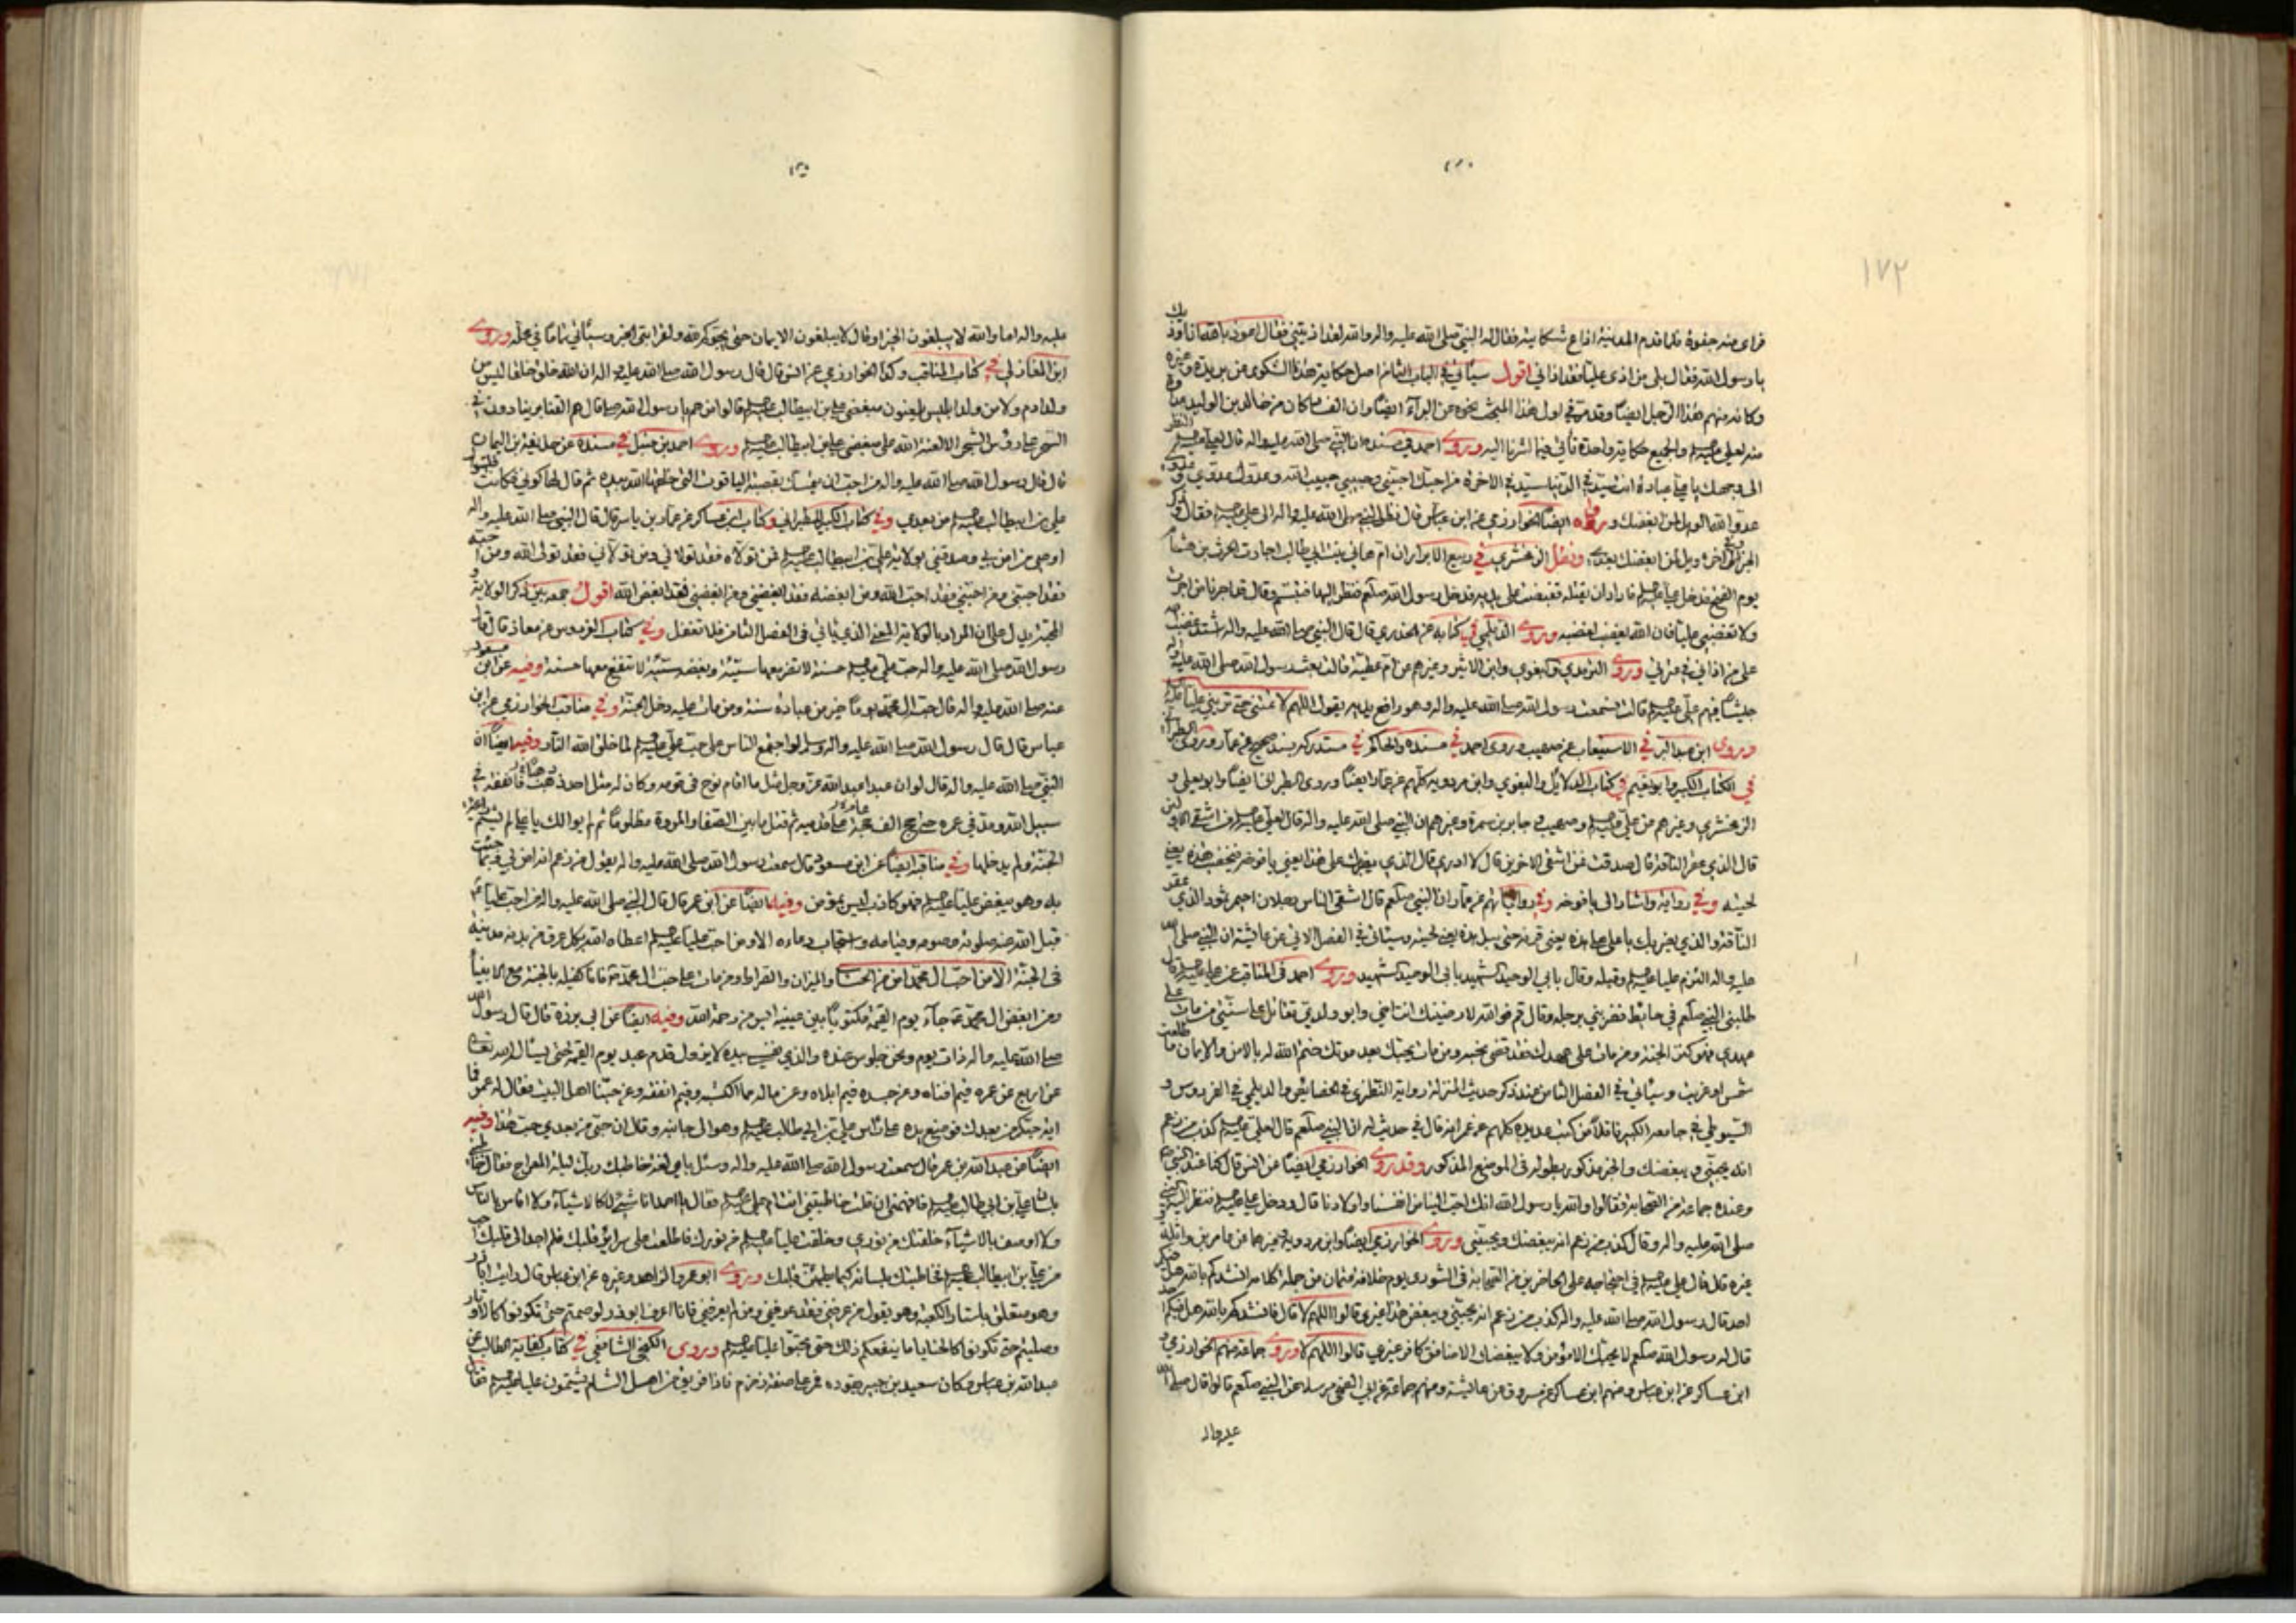 ١٧٢
فرأى منه جفوة فلما قدم المدينة اذاع شكايته فقال له النبي صلى الله عليه واله والله لقد اذيتني فقال اعوذ بالله ان اوذيك
يا رسول الله فقال بلى من اذى عليا فقد اذاني اقول سيأتي في الباب الثامن اصل حكاية هذا الشكوى عن بريدة وغيره
وكانه منهم هذا الرجل ايضا وقد مر في اول هذا المبحث نحوه عن البراء ايضا وان الف ما كان من خالد بن الوليد
منه لعلي والجميع حكاية واحدة تأتي فيما اشرنا اليه وروى احمد في مسنده ان النبي صلى الله عليه واله قال لعلي النظر
الى وجهك يا علي عبادة انت سيد في الدنيا سيد في الاخرة من احبك احبني وحبيبي حبيب الله وعدوك عدوي وعدوي
عدو الله الويل لمن ابغضك ورواه ايضا الخوارزمي عن ابن عباس قال نظر النبي صلى الله عليه واله الى علي فقال وذكر
الخبر الى اخره ويل لمن ابغضك بعدي ونقل الزمخشري في ربيع الابرار ان ام هاني بنت ابي طالب اجارت الحرث بن هشام
يوم الفتح فدخل علي فاراد ان يقتله فقبضت على يديه فدخل رسول الله صلعم فنظر اليها فتبسم وقال قد اجرنا من اجرت
ولا تغضبي عليا فان الله يغضب لغضبه وروى الديلمي في كتابه عن الخدري قال قال النبي صلى الله عليه واله اشتد غضب الله
على من اذاني في عترتي وروى الترمذي والبغوي وابن الاثير وغيرهم عن ام عطية قالت بعث رسول الله صلى الله عليه واله
جيشا فيهم علي قالت فسمعت رسول الله صلى الله عليه واله وهو رافع يديه يقول اللهم لا تمتني حتى تريني عليا
وروى ابن عبد البر في الاستيعاب عن صهيب وروى احمد في مسنده والحاكم في مستدركه بسند صحيح عن عمار وروى الطبراني
في الكتاب الكبير وابو نعيم في كتاب الدلايل والبغوي وابن مردويه كلهم عن عمار ايضا وروى الطبراني ايضا وابو يعلى و
الزمخشري وغيرهم عن علي وصهيب وجابر بن سمرة وغيرهم ان النبي صلى الله عليه واله قال لعلي من اشقى الاولين
قال الذي عقر الناقة قال صدقت فمن اشقى الاخرين قال لا ادري قال الذي يضربك على هذا يعني يافوخه فيخضب هذه يعني
لحيته وفي رواية واشار الى يافوخه وفي رواياتهم عن عمار ان النبي صلعم قال اشقى الناس رجلان احيمر ثمود الذي عقر
الناقة والذي يضربك يا علي على هذه يعني قرنه حتى يبل هذه يعني لحيته وسيأتي في الفصل الاتي عن عايشة ان النبي صلى الله
عليه واله التزم عليا وقبله وقال بابي الوحيد الشهيد بابي الوحيد الشهيد وروى احمد في المناقب عن علي قال
طلبني النبي صلعم في حايط فضربني برجله وقال قم فوالله لارضينك انت اخي وابو ولدي تقاتل على سنتي من مات على
عهدي فهو في كنز الجنة ومن مات على عهدك فقد قضى نحبه ومن مات يحبك بعد موتك ختم الله له بالامن والايمان ما طلعت
شمس او غربت وسيأتي في الفصل الثامن عند ذكر حديث المنزلة رواية النطنزي في الخصايص والديلمي في الفردوس و
السيوطي في جامعه الكبير ناقلا من كتب عديدة كلهم عن عمر انه قال في حديث له ان النبي صلعم قال لعلي كذب من زعم
انه يحبني ويبغضك والخبر مذكور بطوله في الموضع المذكور وقد روى الخوارزمي ايضا عن انس قال كنا عند النبي
وعنده جماعة من الصحابة فقالوا والله يا رسول الله انك احب الينا من انفسنا واولادنا قال ودخل علي فنظر اليه النبي
صلى الله عليه واله وقال كذب من زعم انه يبغضك ويحبني وروى الخوارزمي ايضا وابن مردويه وغيرهما عن عامر بن واثلة
غيره قال قال علي في احتجاجه على الحاضرين من الصحابة في الشورى يوم خلافة عثمان من جملة كلامه انشدكم بالله هل فيكم
احد قال رسول الله صلى الله عليه واله كذب من زعم انه يحبني ويبغض هذا غيري قالوا اللهم لا قال فانشدكم بالله هل فيكم احد
قال له رسول الله صلعم لا يحبك الا مؤمن ولا يبغضك الا منافق كافر غيري قالوا اللهم لا وروى جماعة منهم الخوارزمي و
ابن عساكر عن ابن عباس ومنهم ابن عساكر عن مسروق عن عايشة ومنهم جماعة عن ابي الضحى مرسلا عن النبي صلعم قالوا قال صلى الله
عليه واله
عليه واله اما والله لا يبلغون الخير او قال لا يبلغون الايمان حتى يحبوكم لله ولقرابتي الخبر وسيأتي تماما في محله وروى
ابن المغازلي في كتاب المناقب وكذا الخوارزمي عن انس قال قال رسول الله صلى الله عليه واله ان الله خلق خلقا ليس من
ولد ادم ولا من ولد ابليس يلعنون مبغضي علي بن ابيطالب قالوا من هم يا رسول الله قال هم القنابر ينادون في
السحر على رؤس الشجر الا لعنة الله على مبغضي علي بن ابيطالب وروى احمد بن حنبل في مسنده عن حذيفة بن اليمان
قال قال رسول الله صلى الله عليه واله من احب ان يتمسك بقصبة الياقوت التي خلقها الله بيده ثم قال لها كوني فكانت فليتول
علي بن ابيطالب من بعدي وفي كتاب الكبير للطبراني وكتاب ابن عساكر عن عمار بن ياسر قال قال النبي صلى الله عليه واله
اوصي من امن بي وصدقني بولاية علي بن ابيطالب فمن تولاه فقد تولاني ومن تولاني فقد تولى الله ومن احبه
فقد احبني ومن احبني فقد احب الله ومن ابغضه فقد ابغضني ومن ابغضني فقد ابغض الله اقول جمعه بين ذكر الولاية و
المحبة يدل على ان المراد بالولاية المعنى الذي يأتي في الفصل الثامن فلا تغفل وفي كتاب الفردوس عن معاذ قال قال
رسول الله صلى الله عليه واله حب علي حسنة لا تضر معها سيئة وبغضه سيئة لا تنفع معها حسنة وفيه عن ابن مسعود
عنه صلى الله عليه واله قال حب ال محمد يوما خير من عبادة سنة ومن مات عليه دخل الجنة وفي مناقب الخوارزمي عن ابن
عباس قال قال رسول الله صلى الله عليه واله وسلم لو اجتمع الناس على حب علي لما خلق الله النار وفيه ايضا ان
النبي صلى الله عليه واله قال لو ان عبدا عبد الله عز وجل مثل ما اقام نوح في قومه وكان له مثل احد ذهبا فانفقه في
سبيل الله ومد في عمره حتى حج الف عام على قدميه ثم قتل ما بين الصفا والمروة مظلوما ثم لم يوالك يا علي لم يشم رايحة
الجنة ولم يدخلها وفي مناقبه ايضا عن ابن مسعود قال سمعت رسول الله صلى الله عليه واله يقول من زعم انه امن بي وبما جئت
به وهو يبغض عليا فهو كاذب ليس بمؤمن وفيه ايضا عن ابن عمر قال قال النبي صلى الله عليه واله من احب عليا
قبل الله منه صلوته وصومه وقيامه واستجاب دعاءه الا ومن احب عليا اعطاه الله بكل عرق في بدنه مدينة
في الجنة الا من احب ال محمد امن من الحساب والميزان والصراط ومن مات على حب ال محمد فانا كفيله بالجنة مع الانبياء
ومن ابغض ال محمد جاء يوم القيمة مكتوبا بين عينيه ايس من رحمة الله وفيه ايضا عن ابي برزة قال قال رسول الله
صلى الله عليه واله ذات يوم ونحن جلوس عنده والذي نفسي بيده لا يزول قدم عبد يوم القيمة حتى يسأل الله تعالى
عن اربع عن عمره فيم افناه وعن جسده فيم ابلاه وعن ماله مما اكتسبه وفيم انفقه وعن حبنا اهل البيت فقال له عمر فما
اية حبكم من بعدك فوضع يده على رأس علي بن ابي طالب وهو الى جانبه وقال ان حبي من بعدي حب هذا وفيه
ايضا عن عبد الله بن عمر قال سمعت رسول الله صلى الله عليه واله وسئل باي لغة خاطبك ربك ليلة المعراج فقال خاطبني
بلسان علي بن ابي طالب فالهمني ان قلت خاطبتني انت ام علي فقال يا احمد انا شئ لا كالاشياء ولا اقاس بالناس
ولا اوصف بالاشياء خلقتك من نوري وخلقت عليا من نورك فاطلعت على سراير قلبك فلم اجد الى قلبك احب
من علي بن ابيطالب فخاطبتك بلسانه كيما يطمئن قلبك وروى ابو عمر الزاهد وغيره عن ابن عباس قال رايت ابا ذر
وهو متعلق باستار الكعبة وهو يقول من عرفني فقد عرفني ومن لم يعرفني فانا اعرفه ابو ذر لو صمتم حتى تكونوا كالاوتار
وصليتم حتى تكونوا كالحنايا ما ينفعكم ذلك حتى تحبوا عليا وروى الكنجي الشافعي في كتاب كفاية الطالب عن
عبد الله بن عباس وكان سعيد بن جبير يقوده فمر على صفة زمزم فاذا فريق من اهل الشام يشتمون عليا فقال